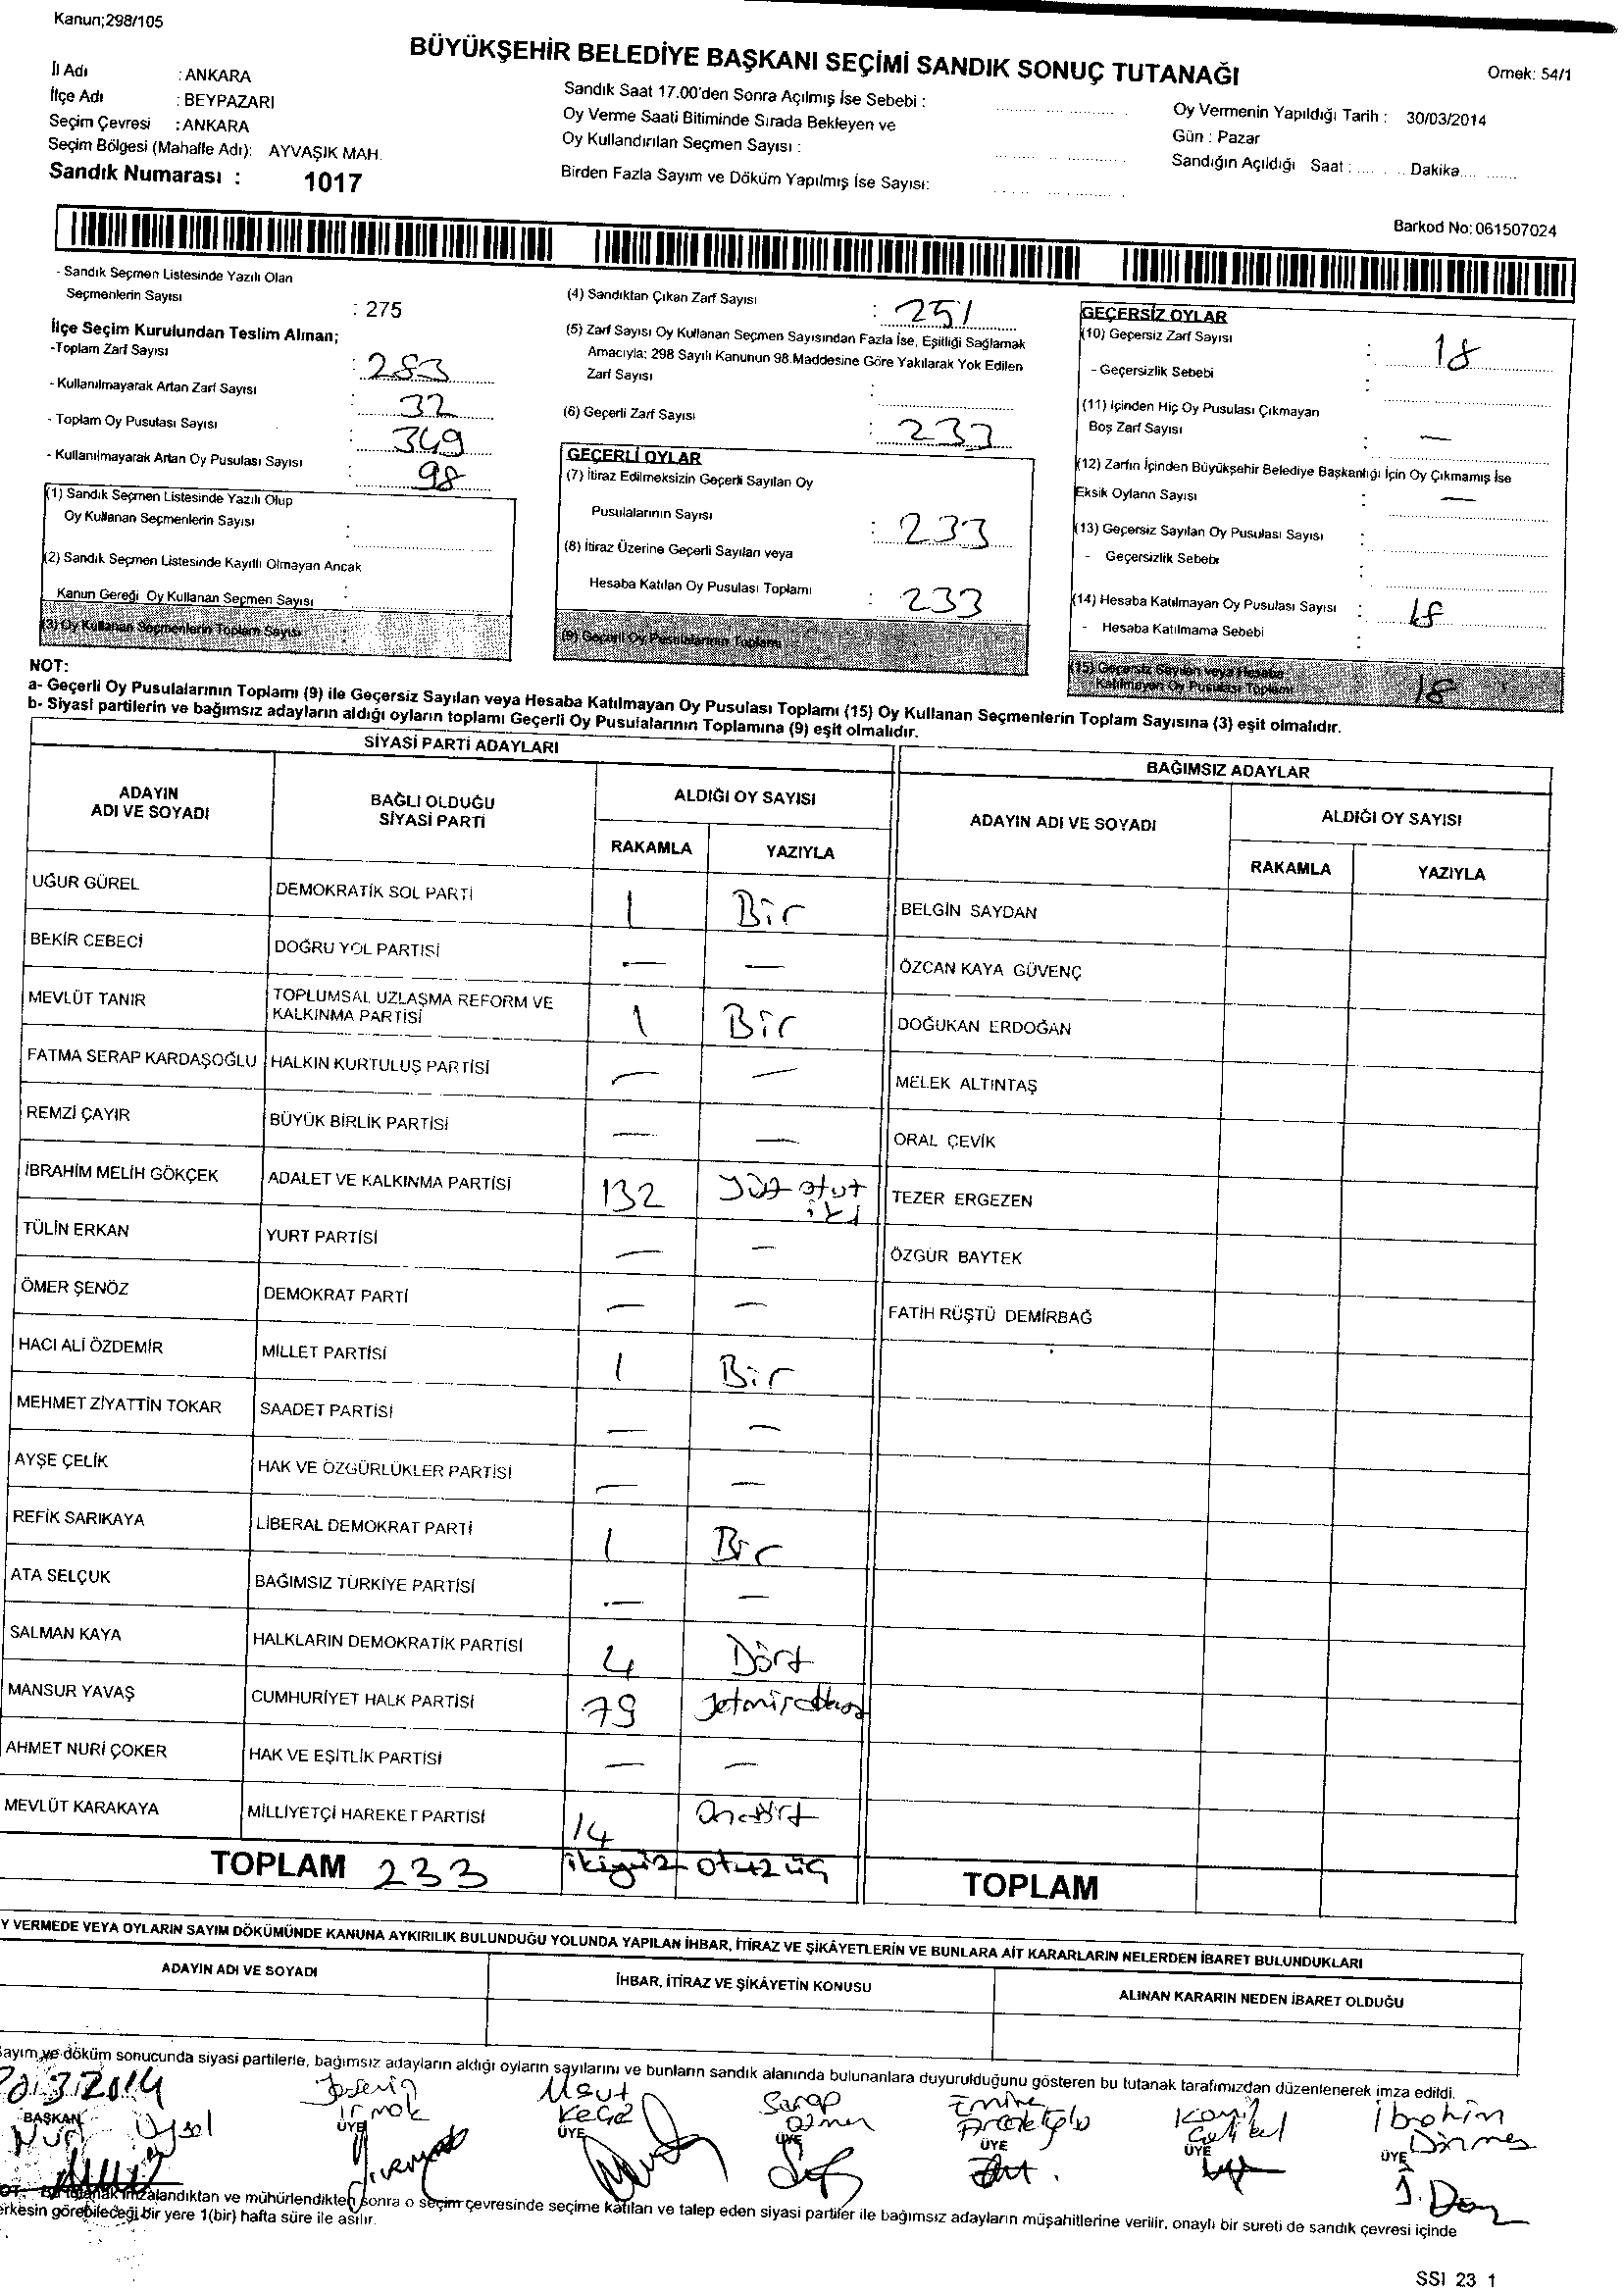 Kanun;298/105
BÜYÜKŞEHİR BELEDİYE BAŞKANI SEÇİMİ SANDIK SONUÇ TUTANAĞI
Örnek: 54/1
İl Adı : ANKARA
İlçe Adı : BEYPAZARI
Seçim Çevresi : ANKARA
Seçim Bölgesi (Mahalle Adı): AYVAŞIK MAH.
Sandık Numarası : 1017
Sandık Saat 17.00'den Sonra Açılmış İse Sebebi :
Oy Verme Saati Bitiminde Sırada Bekleyen ve
Oy Kullandırılan Seçmen Sayısı :
Birden Fazla Sayım ve Döküm Yapılmış İse Sayısı:
Oy Vermenin Yapıldığı Tarih : 30/03/2014
Gün : Pazar
Sandığın Açıldığı Saat : ...... Dakika..........
Barkod No: 061507024
- Sandık Seçmen Listesinde Yazılı Olan
Seçmenlerin Sayısı : 275
İlçe Seçim Kurulundan Teslim Alınan;
-Toplam Zarf Sayısı : 283
- Kullanılmayarak Artan Zarf Sayısı : 32
- Toplam Oy Pusulası Sayısı : 349
- Kullanılmayarak Artan Oy Pusulası Sayısı : 98
(1) Sandık Seçmen Listesinde Yazılı Olup
Oy Kullanan Seçmenlerin Sayısı :
(2) Sandık Seçmen Listesinde Kayıtlı Olmayan Ancak
Kanun Gereği Oy Kullanan Seçmen Sayısı :
(3) Oy Kullanan Seçmenlerin Toplam Sayısı
(4) Sandıktan Çıkan Zarf Sayısı : 251
(5) Zarf Sayısı Oy Kullanan Seçmen Sayısından Fazla İse, Eşitliği Sağlamak
Amacıyla: 298 Sayılı Kanunun 98.Maddesine Göre Yakılarak Yok Edilen
Zarf Sayısı :
(6) Geçerli Zarf Sayısı : 233
GEÇERLİ OYLAR
(7) İtiraz Edilmeksizin Geçerli Sayılan Oy
Pusulalarının Sayısı : 233
(8) İtiraz Üzerine Geçerli Sayılan veya
Hesaba Katılan Oy Pusulası Toplamı : 233
(9) Geçerli Oy Pusulalarının Toplamı
GEÇERSİZ OYLAR
(10) Geçersiz Zarf Sayısı : 18
- Geçersizlik Sebebi :
(11) İçinden Hiç Oy Pusulası Çıkmayan
Boş Zarf Sayısı : —
(12) Zarfın İçinden Büyükşehir Belediye Başkanlığı İçin Oy Çıkmamış İse
Eksik Oyların Sayısı : —
(13) Geçersiz Sayılan Oy Pusulası Sayısı :
- Geçersizlik Sebebi :
(14) Hesaba Katılmayan Oy Pusulası Sayısı : 18
- Hesaba Katılmama Sebebi :
(15) Geçersiz Sayılan veya Hesaba
Katılmayan Oy Pusulası Toplamı : 18
NOT:
a- Geçerli Oy Pusulalarının Toplamı (9) ile Geçersiz Sayılan veya Hesaba Katılmayan Oy Pusulası Toplamı (15) Oy Kullanan Seçmenlerin Toplam Sayısına (3) eşit olmalıdır.
b- Siyasi partilerin ve bağımsız adayların aldığı oyların toplamı Geçerli Oy Pusulalarının Toplamına (9) eşit olmalıdır.
SİYASİ PARTİ ADAYLARI
BAĞIMSIZ ADAYLAR
ADAYIN ADI VE SOYADI
BAĞLI OLDUĞU SİYASİ PARTİ
ALDIĞI OY SAYISI
RAKAMLA YAZIYLA
ADAYIN ADI VE SOYADI
ALDIĞI OY SAYISI
RAKAMLA YAZIYLA
UĞUR GÜREL DEMOKRATİK SOL PARTİ 1 Bir BELGİN SAYDAN
BEKİR CEBECİ DOĞRU YOL PARTİSİ — — ÖZCAN KAYA GÜVENÇ
MEVLÜT TANIR TOPLUMSAL UZLAŞMA REFORM VE KALKINMA PARTİSİ 1 Bir DOĞUKAN ERDOĞAN
FATMA SERAP KARDAŞOĞLU HALKIN KURTULUŞ PARTİSİ — — MELEK ALTINTAŞ
REMZİ ÇAYIR BÜYÜK BİRLİK PARTİSİ — — ORAL ÇEVİK
İBRAHİM MELİH GÖKÇEK ADALET VE KALKINMA PARTİSİ 132 yüz otuz iki TEZER ERGEZEN
TÜLİN ERKAN YURT PARTİSİ — — ÖZGÜR BAYTEK
ÖMER ŞENÖZ DEMOKRAT PARTİ — — FATİH RÜŞTÜ DEMİRBAĞ
HACI ALİ ÖZDEMİR MİLLET PARTİSİ 1 Bir
MEHMET ZİYATTİN TOKAR SAADET PARTİSİ — —
AYŞE ÇELİK HAK VE ÖZGÜRLÜKLER PARTİSİ — —
REFİK SARIKAYA LİBERAL DEMOKRAT PARTİ 1 Bir
ATA SELÇUK BAĞIMSIZ TÜRKİYE PARTİSİ — —
SALMAN KAYA HALKLARIN DEMOKRATİK PARTİSİ 4 Dört
MANSUR YAVAŞ CUMHURİYET HALK PARTİSİ 79
AHMET NURİ ÇOKER HAK VE EŞİTLİK PARTİSİ — —
MEVLÜT KARAKAYA MİLLİYETÇİ HAREKET PARTİSİ 14 Ondört
TOPLAM 233 ikiyüz otuz üç TOPLAM
Y VERMEDE VEYA OYLARIN SAYIM DÖKÜMÜNDE KANUNA AYKIRILIK BULUNDUĞU YOLUNDA YAPILAN İHBAR, İTİRAZ VE ŞİKÂYETLERİN VE BUNLARA AİT KARARLARIN NELERDEN İBARET BULUNDUKLARI
ADAYIN ADI VE SOYADI İHBAR, İTİRAZ VE ŞİKÂYETİN KONUSU ALINAN KARARIN NEDEN İBARET OLDUĞU
Sayım ve döküm sonucunda siyasi partilerle, bağımsız adayların aldığı oyların sayılarını ve bunların sandık alanında bulunanlara duyurulduğunu gösteren bu tutanak tarafımızdan düzenlenerek imza edildi.
BAŞKAN ÜYE ÜYE ÜYE ÜYE ÜYE ÜYE
Nuri Uysal
Serap
Emine
İbrahim
Bu tutanak imzalandıktan ve mühürlendikten sonra o seçim çevresinde seçime katılan ve talep eden siyasi partiler ile bağımsız adayların müşahitlerine verilir, onaylı bir sureti de sandık çevresi içinde
erkesin görebileceği bir yere 1(bir) hafta süre ile asılır.
SSI 23 1